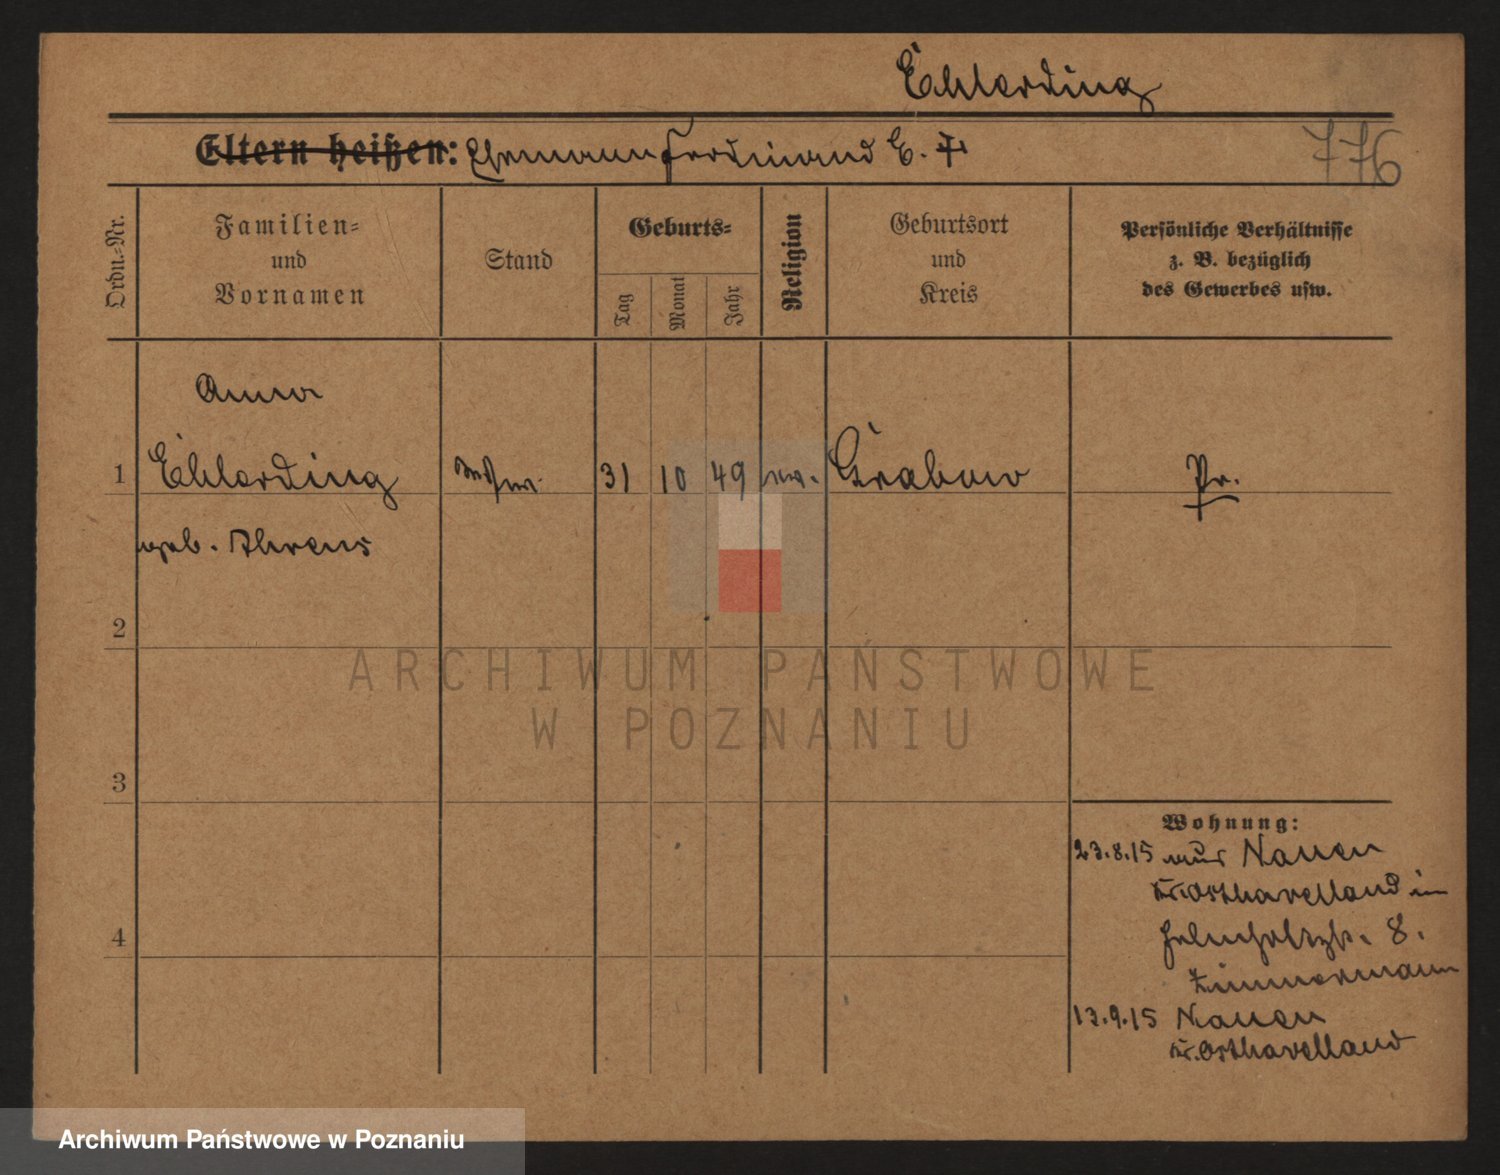 Ehlerding
Eltern heißen: Ehemann Ferdinand E. †
776
Ordn.-Nr.
Familien-
und
Vornamen
Stand
Geburts-
Tag
Monat
Jahr
Religion
Geburtsort
und
Kreis
Persönliche Verhältnisse
z. B. bezüglich
des Gewerbes usw.
Anna
1 Ehlerding 31 10 49 ev. Grabow Pr.
geb. Ahrens
2
3
4
Wohnung:
23.8.15 aus Nauen
Kr. Osthavelland in
8.
Zimmermann
13.9.15 Nauen
Kr. Osthavelland
ARCHIWUM PAŃSTWOWE
W POZNANIU
Archiwum Państwowe w Poznaniu